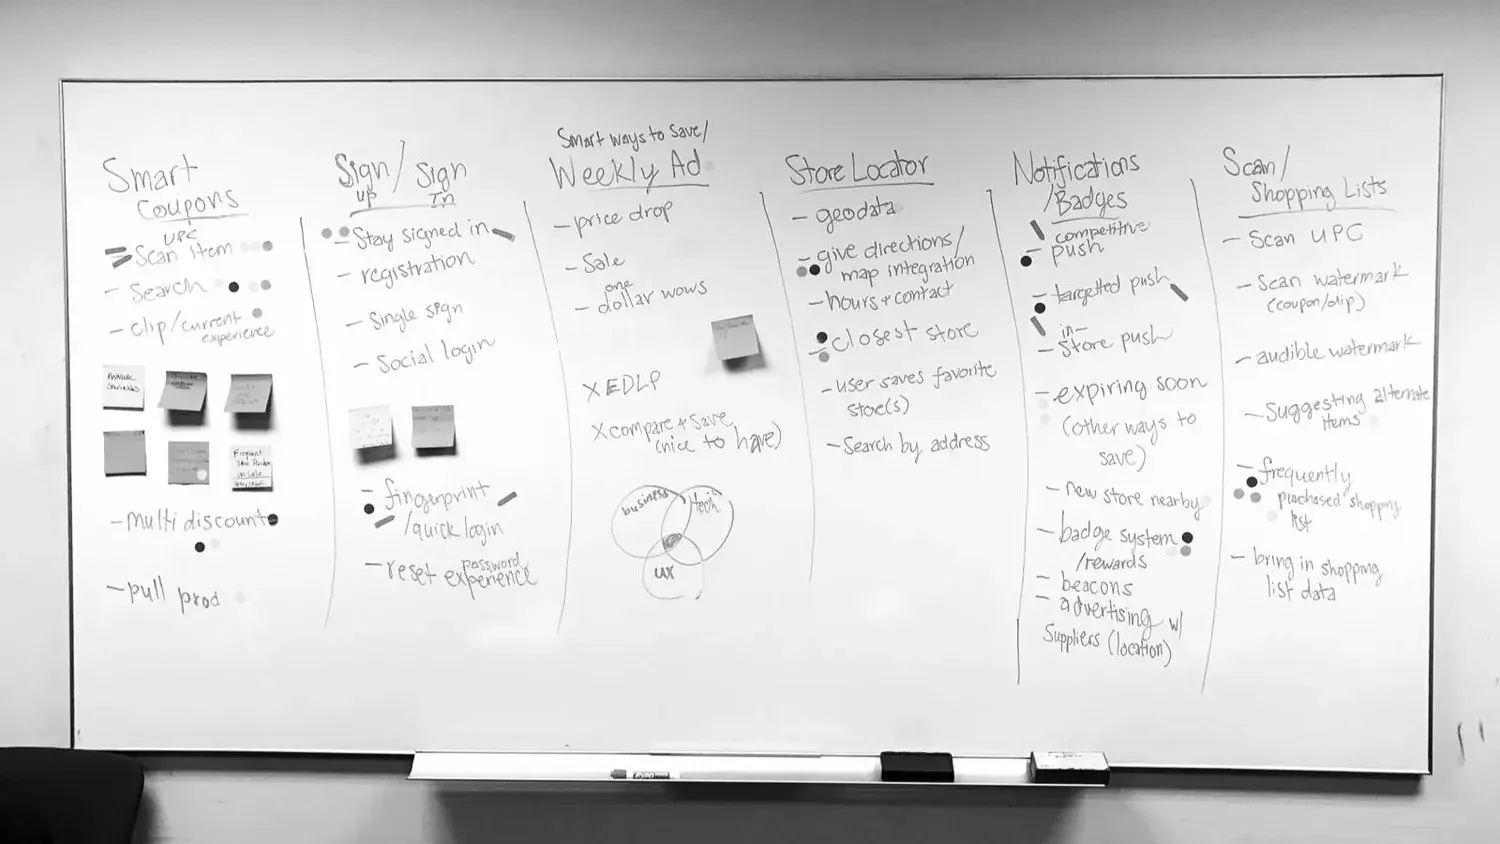 Smart
Coupons
UPC
- Scan item
- Search
- Clip/current
experience
Frequent
- multi discount
- pull prod
Sign/Sign
up In
- Stay signed in
- registration
- Single sign
- Social login
- fingerprint
/quick login
password
- reset experience
Smart ways to Save/
Weekly Ad
- price drop
- Sale
one
- dollar wows
X EDLP
X compare + Save
(nice to have)
business
tech
UX
Store Locator
- geodata
- give directions/
map integration
- hours + contact
- closest store
- user saves favorite
store(s)
- Search by address
Notifications
/Badges
competitive
- push
- targetted push
in-
- Store push
- expiring soon
(other ways to
save)
- new store nearby
- badge system
/rewards
- beacons
- advertising w/
Suppliers (location)
Scan/
Shopping Lists
- Scan UPC
- Scan watermark
(coupon/clip)
- audible watermark
- Suggesting alternate
items
- frequently
purchased shopping
list
- bring in shopping
list data
EXPO